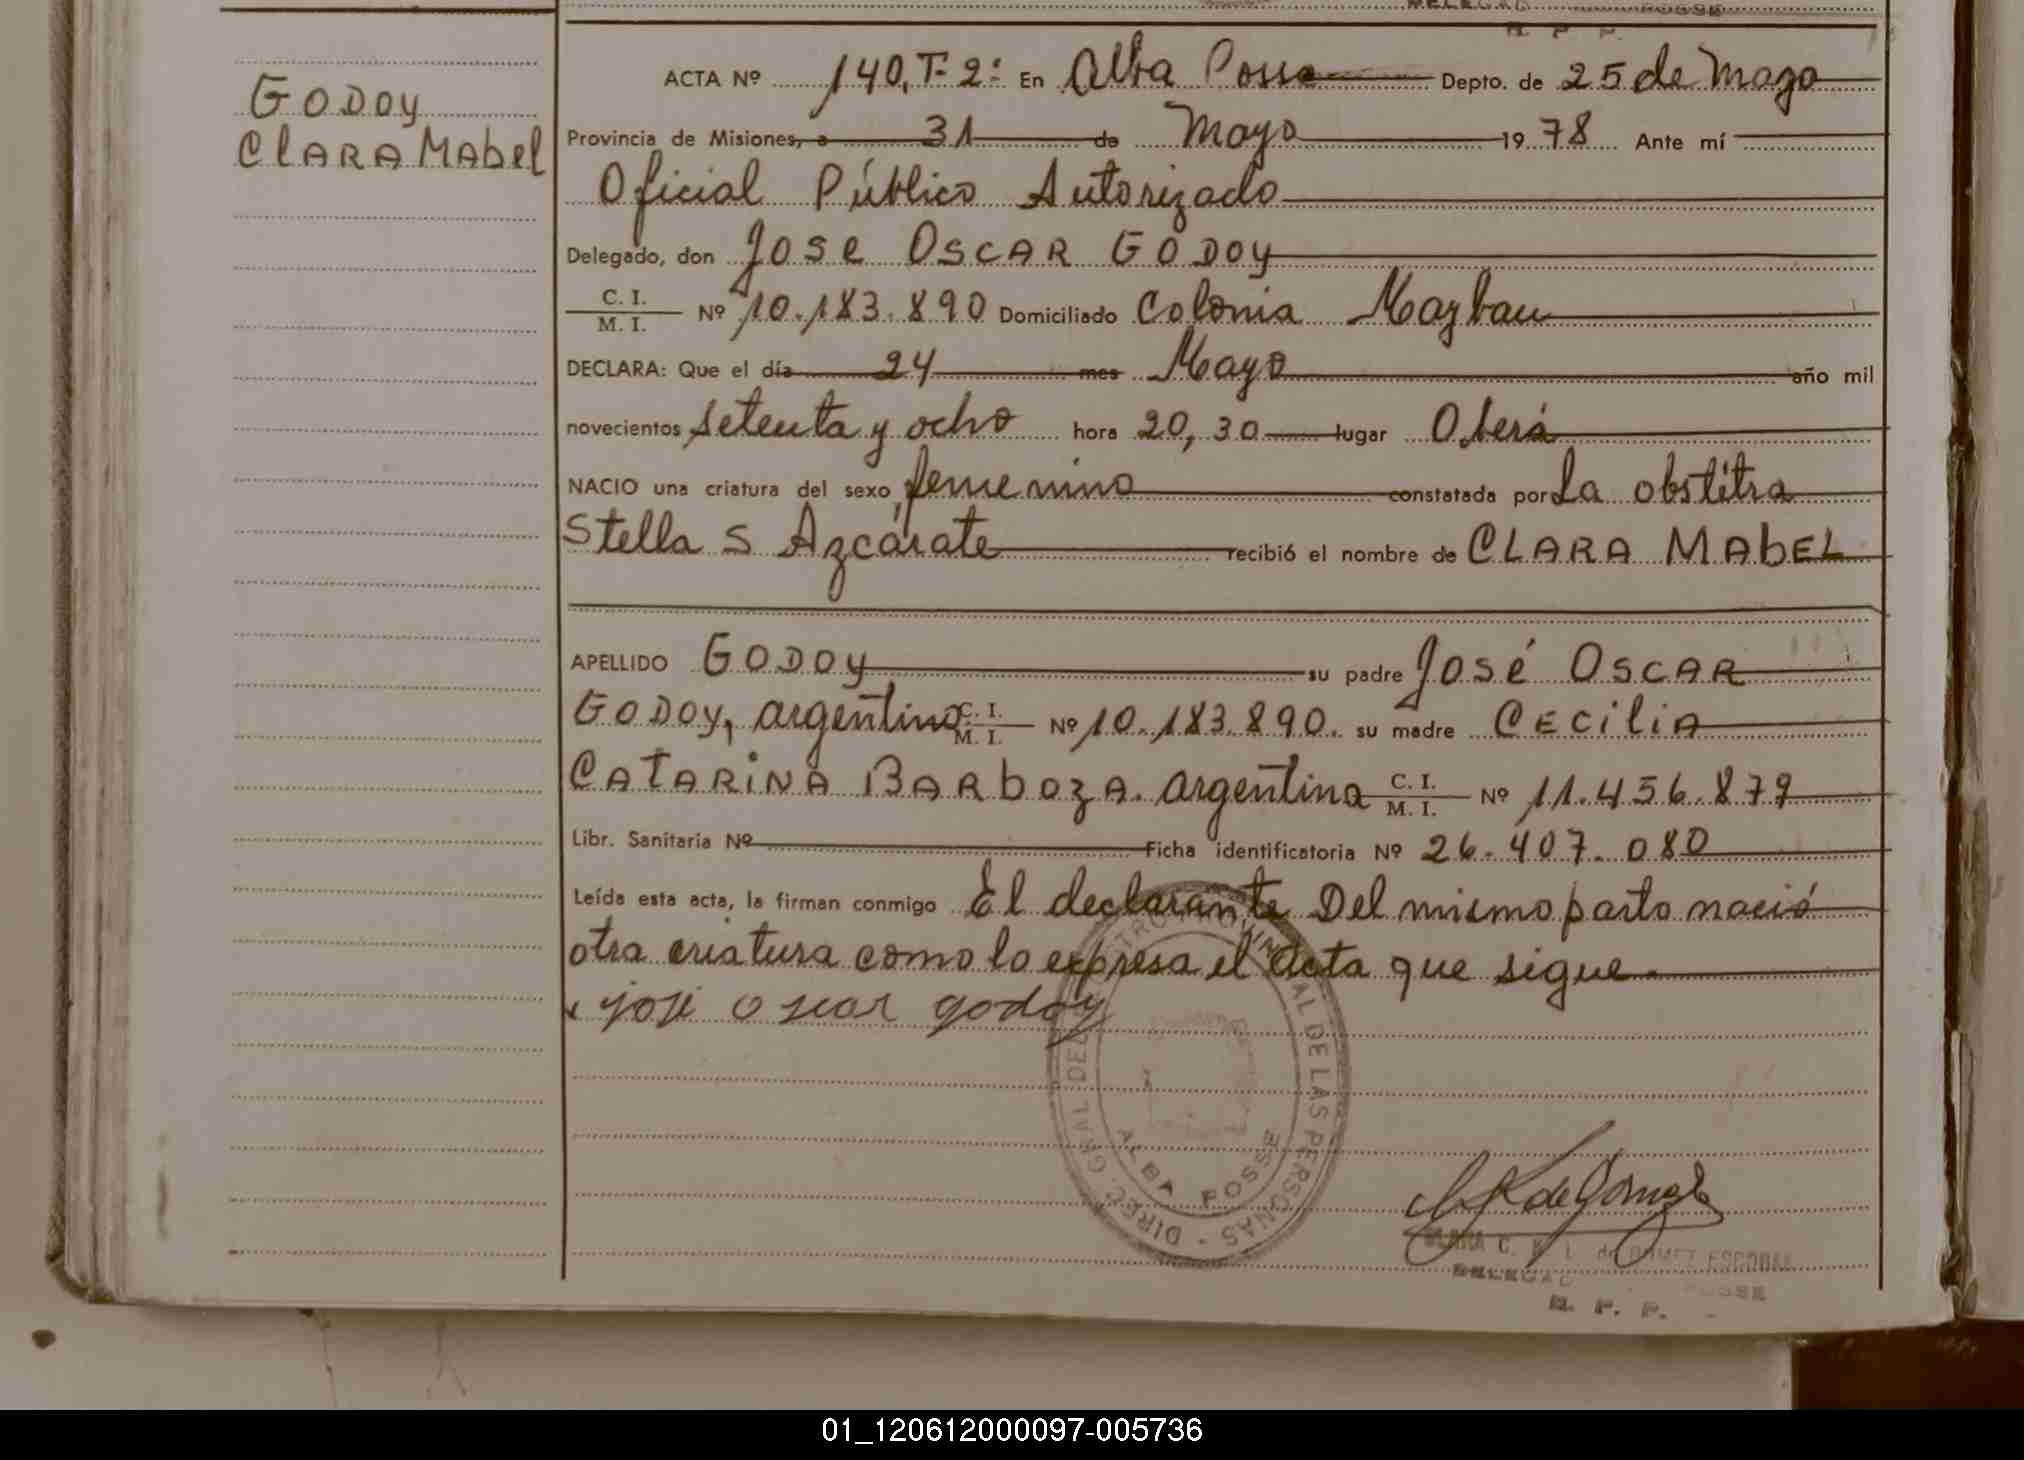 GODOY
CLARA MAbel
ACTA Nº 140, T-2: En Alba Posse Depto. de 25 de Mayo
Provincia de Misiones, a 31 de Mayo 1978 Ante mí
Oficial Público Autorizado
Delegado, don JOSE OSCAR GODOY
C. I.
M. I. Nº 10.183.890 Domiciliado Colonia
DECLARA: Que el día 24 mes Mayo año mil
novecientos setenta y ocho hora 20,30 lugar Oberá
NACIO una criatura del sexo femenino constatada por La obstétra
Stella S Azcárate recibió el nombre de CLARA MAbEL
APELLIDO GODOY su padre JOSÉ OSCAR
GODOY, argentino C. I. M. I. Nº 10.183.890. su madre CECILIA
CATARINA BARBOZA. argentina C. I. M. I. Nº 11.456.879
Libr. Sanitaria Nº Ficha identificatoria Nº 26.407.080
Leída esta acta, la firman conmigo El declarante Del mismo parto nació
otra criatura como lo expresa el acta que sigue.
josé oscar godoy
DIREC. GRAL DEL REGISTRO PROVINCIAL DE LAS PERSONAS
ALBA POSSE
CLARA C. K. L. de GOMEZ ESCOBAR
DELEGAD POSSE
R. P. P.
01_120612000097-005736